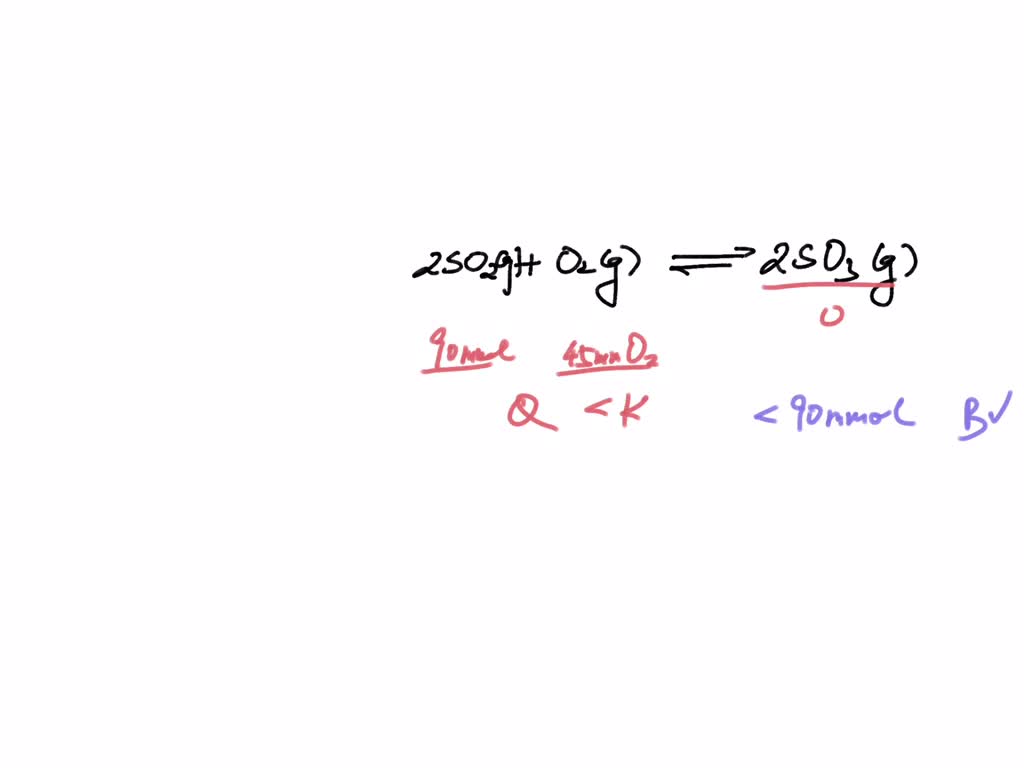 2SO₂(g) + O₂(g) ⇌ 2SO₃(g)
0
90mmol 45mm O₂
Q < K < 90mmol B✓